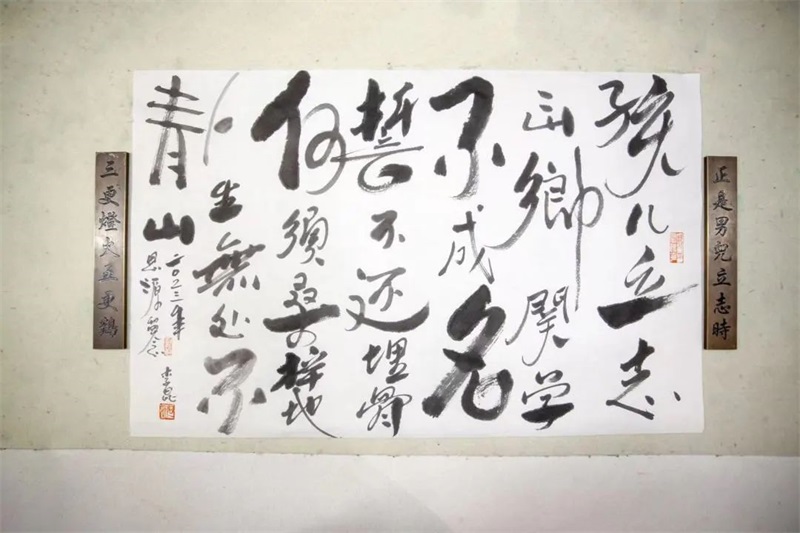 正是男兒立志時
孩儿立志
出鄉関学
不成名
誓不还埋骨
何須桑梓地
人生無处不
青山
二〇二三年
思源留念
三更燈火五更鷄